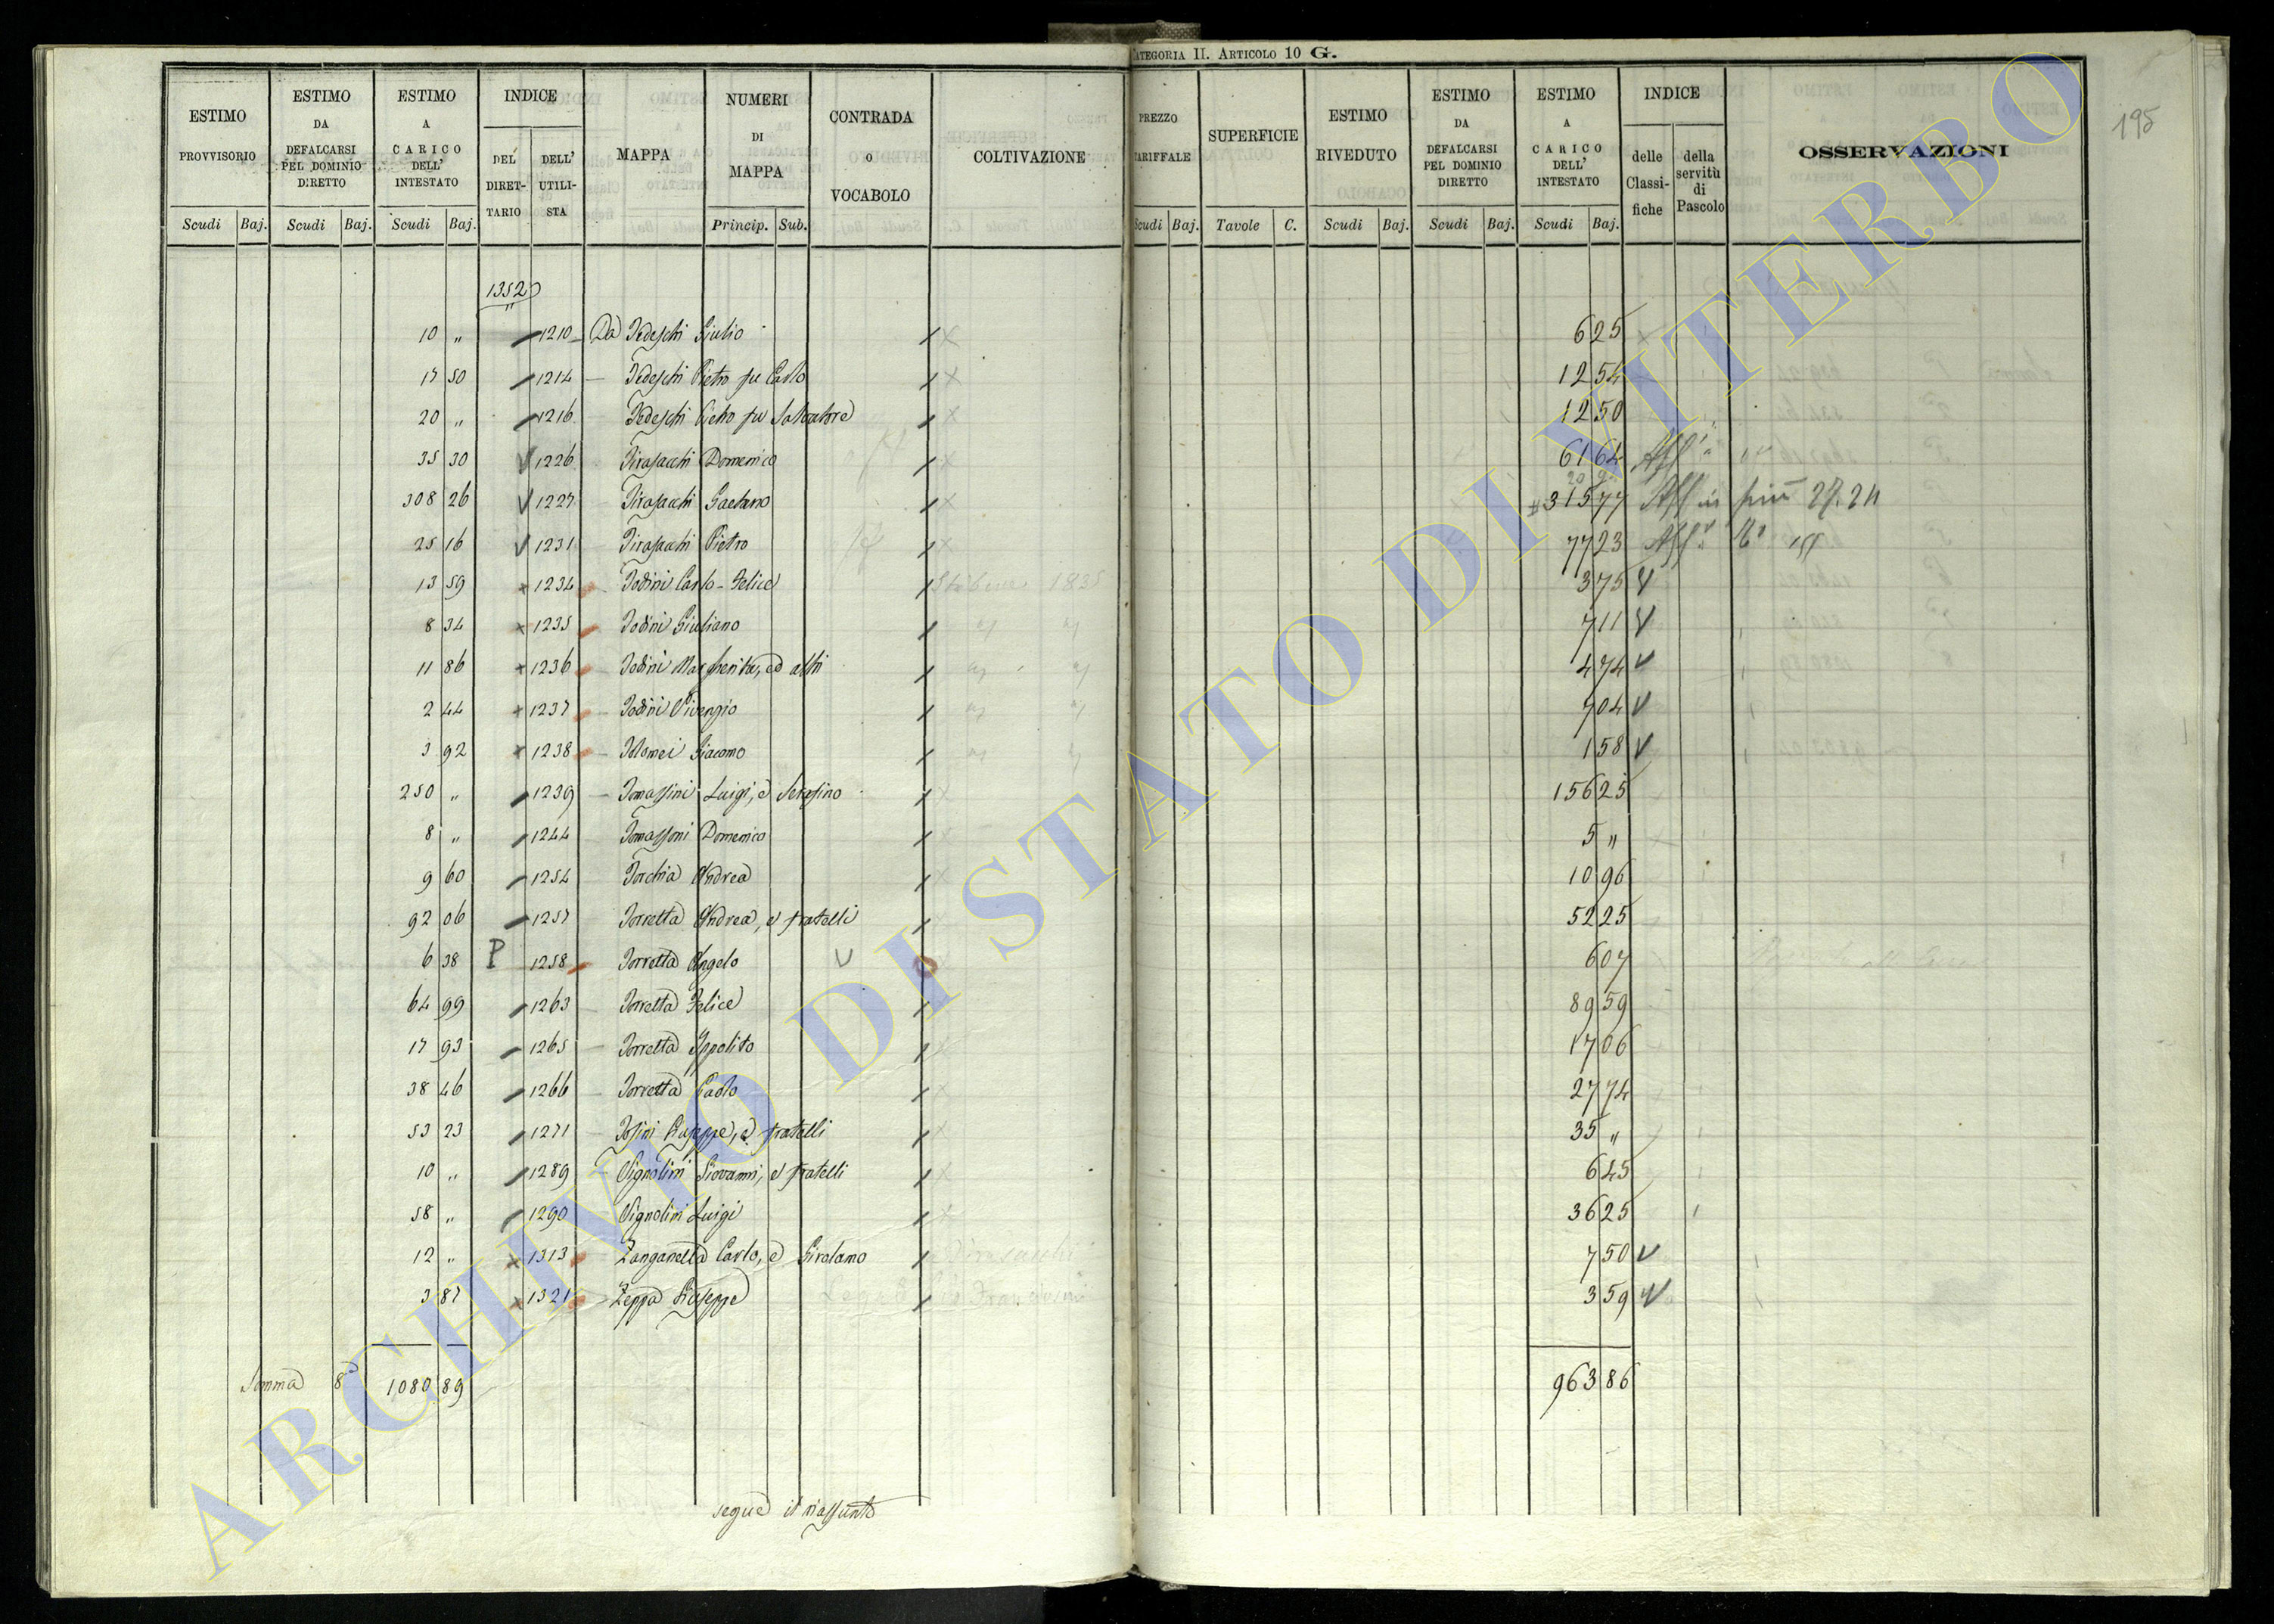 CATEGORIA II. ARTICOLO 10 G.
195
ESTIMO PROVVISORIO ESTIMO DA DEFALCARSI PEL DOMINIO DIRETTO ESTIMO A CARICO DELL' INTESTATO INDICE DEL DIRETTARIO DELL' UTILISTA MAPPA NUMERI DI MAPPA CONTRADA O VOCABOLO COLTIVAZIONE PREZZO TARIFFALE SUPERFICIE ESTIMO RIVEDUTO ESTIMO DA DEFALCARSI PEL DOMINIO DIRETTO ESTIMO A CARICO DELL' INTESTATO INDICE delle Classifiche della servitù di Pascolo OSSERVAZIONI
Scudi Baj. Scudi Baj. Scudi Baj. Princip. Sub. Scudi Baj. Tavole C. Scudi Baj. Scudi Baj. Scudi Baj.
1352
10 „ 1210 Da Tedeschi Giulio 6 25
17 50 1214 — Tedeschi Pietro fu Carlo 12 54
20 „ 1216 Tedeschi Pietro fu Salvatore 12 50
35 30 V 1226 Tirasacchi Domenico 61 64
308 26 V 1227 Tirasacchi Gaetano 315 77 più 27.24
25 16 V 1231 Tirasacchi Pietro 77 23
13 59 × 1234 — Todini Carlo-Felice 1835 3 75 V
8 34 × 1235 — Todini Giuliano 7 11 V
11 86 × 1236 — Todini Margherita, ed altri 4 74 V
2 44 × 1237 — Todini Vivenzio 9 04 V
3 92 × 1238 — Tolomei Giacomo 1 58 V
250 „ 1239 — Tomassini Luigi, e Serafino 156 25
8 „ 1244 — Tomassoni Domenico 5 „
9 60 1254 — Torchia Andrea 10 96
92 06 1257 — Torretta Andrea, e fratelli 52 25
6 38 P 1258 Torretta Angelo V 6 07
64 99 1263 — Torretta Felice 89 59
17 93 1265 — Torretta Ippolito 17 06
38 46 1266 — Torretta Paolo 27 74
53 23 1271 — Tosini Giuseppe, e fratelli 35 „
10 „ 1289 — Vignolini Giovanni, e fratelli 6 45
58 „ 1290 Vignolini Luigi 36 25
12 „ × 1313 — Zanganella Carlo, e Girolamo 7 50 V
3 87 × 1321 — Zeppa Giuseppe 3 59 V
Somma 8a 1080 89 963 86
segue il riassunto
ARCHIVIO DI STATO DI VITERBO